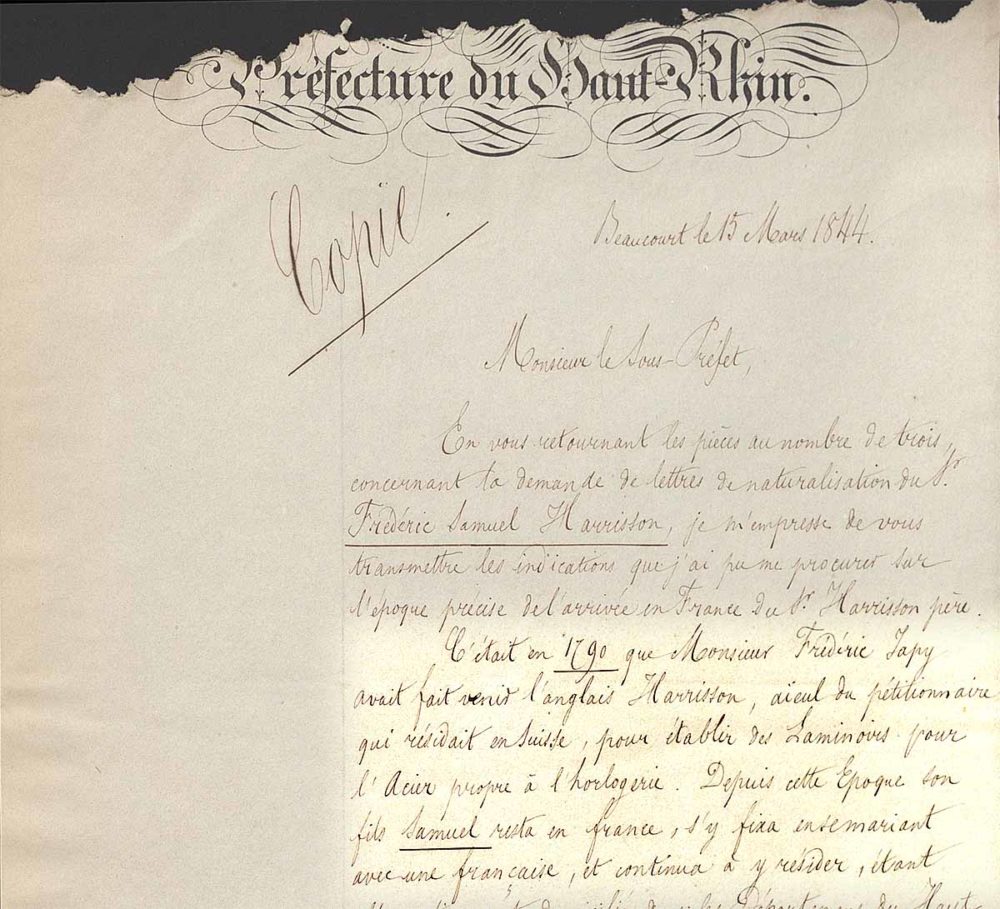 Préfecture du Haut-Rhin.
Copie
Beaucourt le 15 Mars 1844.
Monsieur le Sous-Préfet,
En vous retournant les pièces au nombre de trois,
concernant la demande de lettres de naturalisation du Sr
Frédéric Samuel Harrisson, je m'empresse de vous
transmettre les indications que j'ai pu me procurer sur
l'époque précise de l'arrivée en France du Sr Harrisson père.
C'était en 1790 que Monsieur Frédéric Japy
avait fait venir l'anglais Harrisson, aïeul du pétitionnaire
qui résidait en Suisse, pour établir des Laminoirs pour
l'Acier propre à l'horlogerie. Depuis cette Epoque son
fils Samuel resta en france, s'y fixa en se mariant
avec une française, et continua à y résider, étant
les Départemens du Haut-